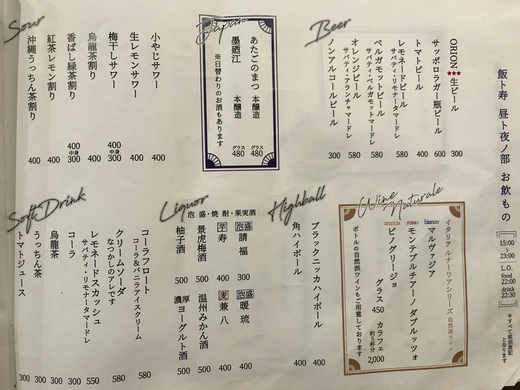 飯ト寿 昼ト夜ノ部 お飲もの
15:00
~
23:00
L.O.
food
22:00
drink
22:30
*すべて税別表記
となります
Beer
ORION ★★★ 生ビール 300
サッポロラガー瓶ビール 600
トマトビール 400
レモネードビール 580
サバティ・リモナータマードレ
ベルガモットビール 580
サバティ・ベルガモットマードレ
オレンジビール 580
サバティ・アランチャマードレ
ノンアルコールビール 300
Japan
あたごのまつ 本醸造 グラス 480
墨廼江 本醸造 グラス 480
※日替わりのお酒もあります
Sour
小やじサワー 400
生レモンサワー 400
梅干しサワー 400
中身 300
烏龍茶割り 400
香ばし緑茶割り 400
中身 300
紅茶レモン割り 400
沖縄うっちん茶割り 400
Wine
Naturale
イタリアルナーリアシリーズ 自然派ワイン
bianco マルヴァジア
rosso モンテプルチアーノ ダブルッツォ
ピノグリージョ
グラス 450
カラフェ 約5杯分 2,000
ボトルの自然派ワインもご用意しております
Highball
ブラックニッカハイボール 400
角ハイボール 400
Liquor
泡盛・焼酎・果実酒
泡盛 請福 300
芋 寿 400
景虎梅酒 500
柚子酒 500
泡盛 暖琉 500
麦 兼八 500
温州みかん酒 500
濃厚ヨーグルト酒 500
Soft Drink
コーラフロート 580
コーラ&バニラアイスクリーム
クリームソーダ 580
なつかしのアレです
レモネードスカッシュ 550
サバティ・リモナータマードレ
コーラ 300
烏龍茶 300
うっちん茶 300
トマトジュース